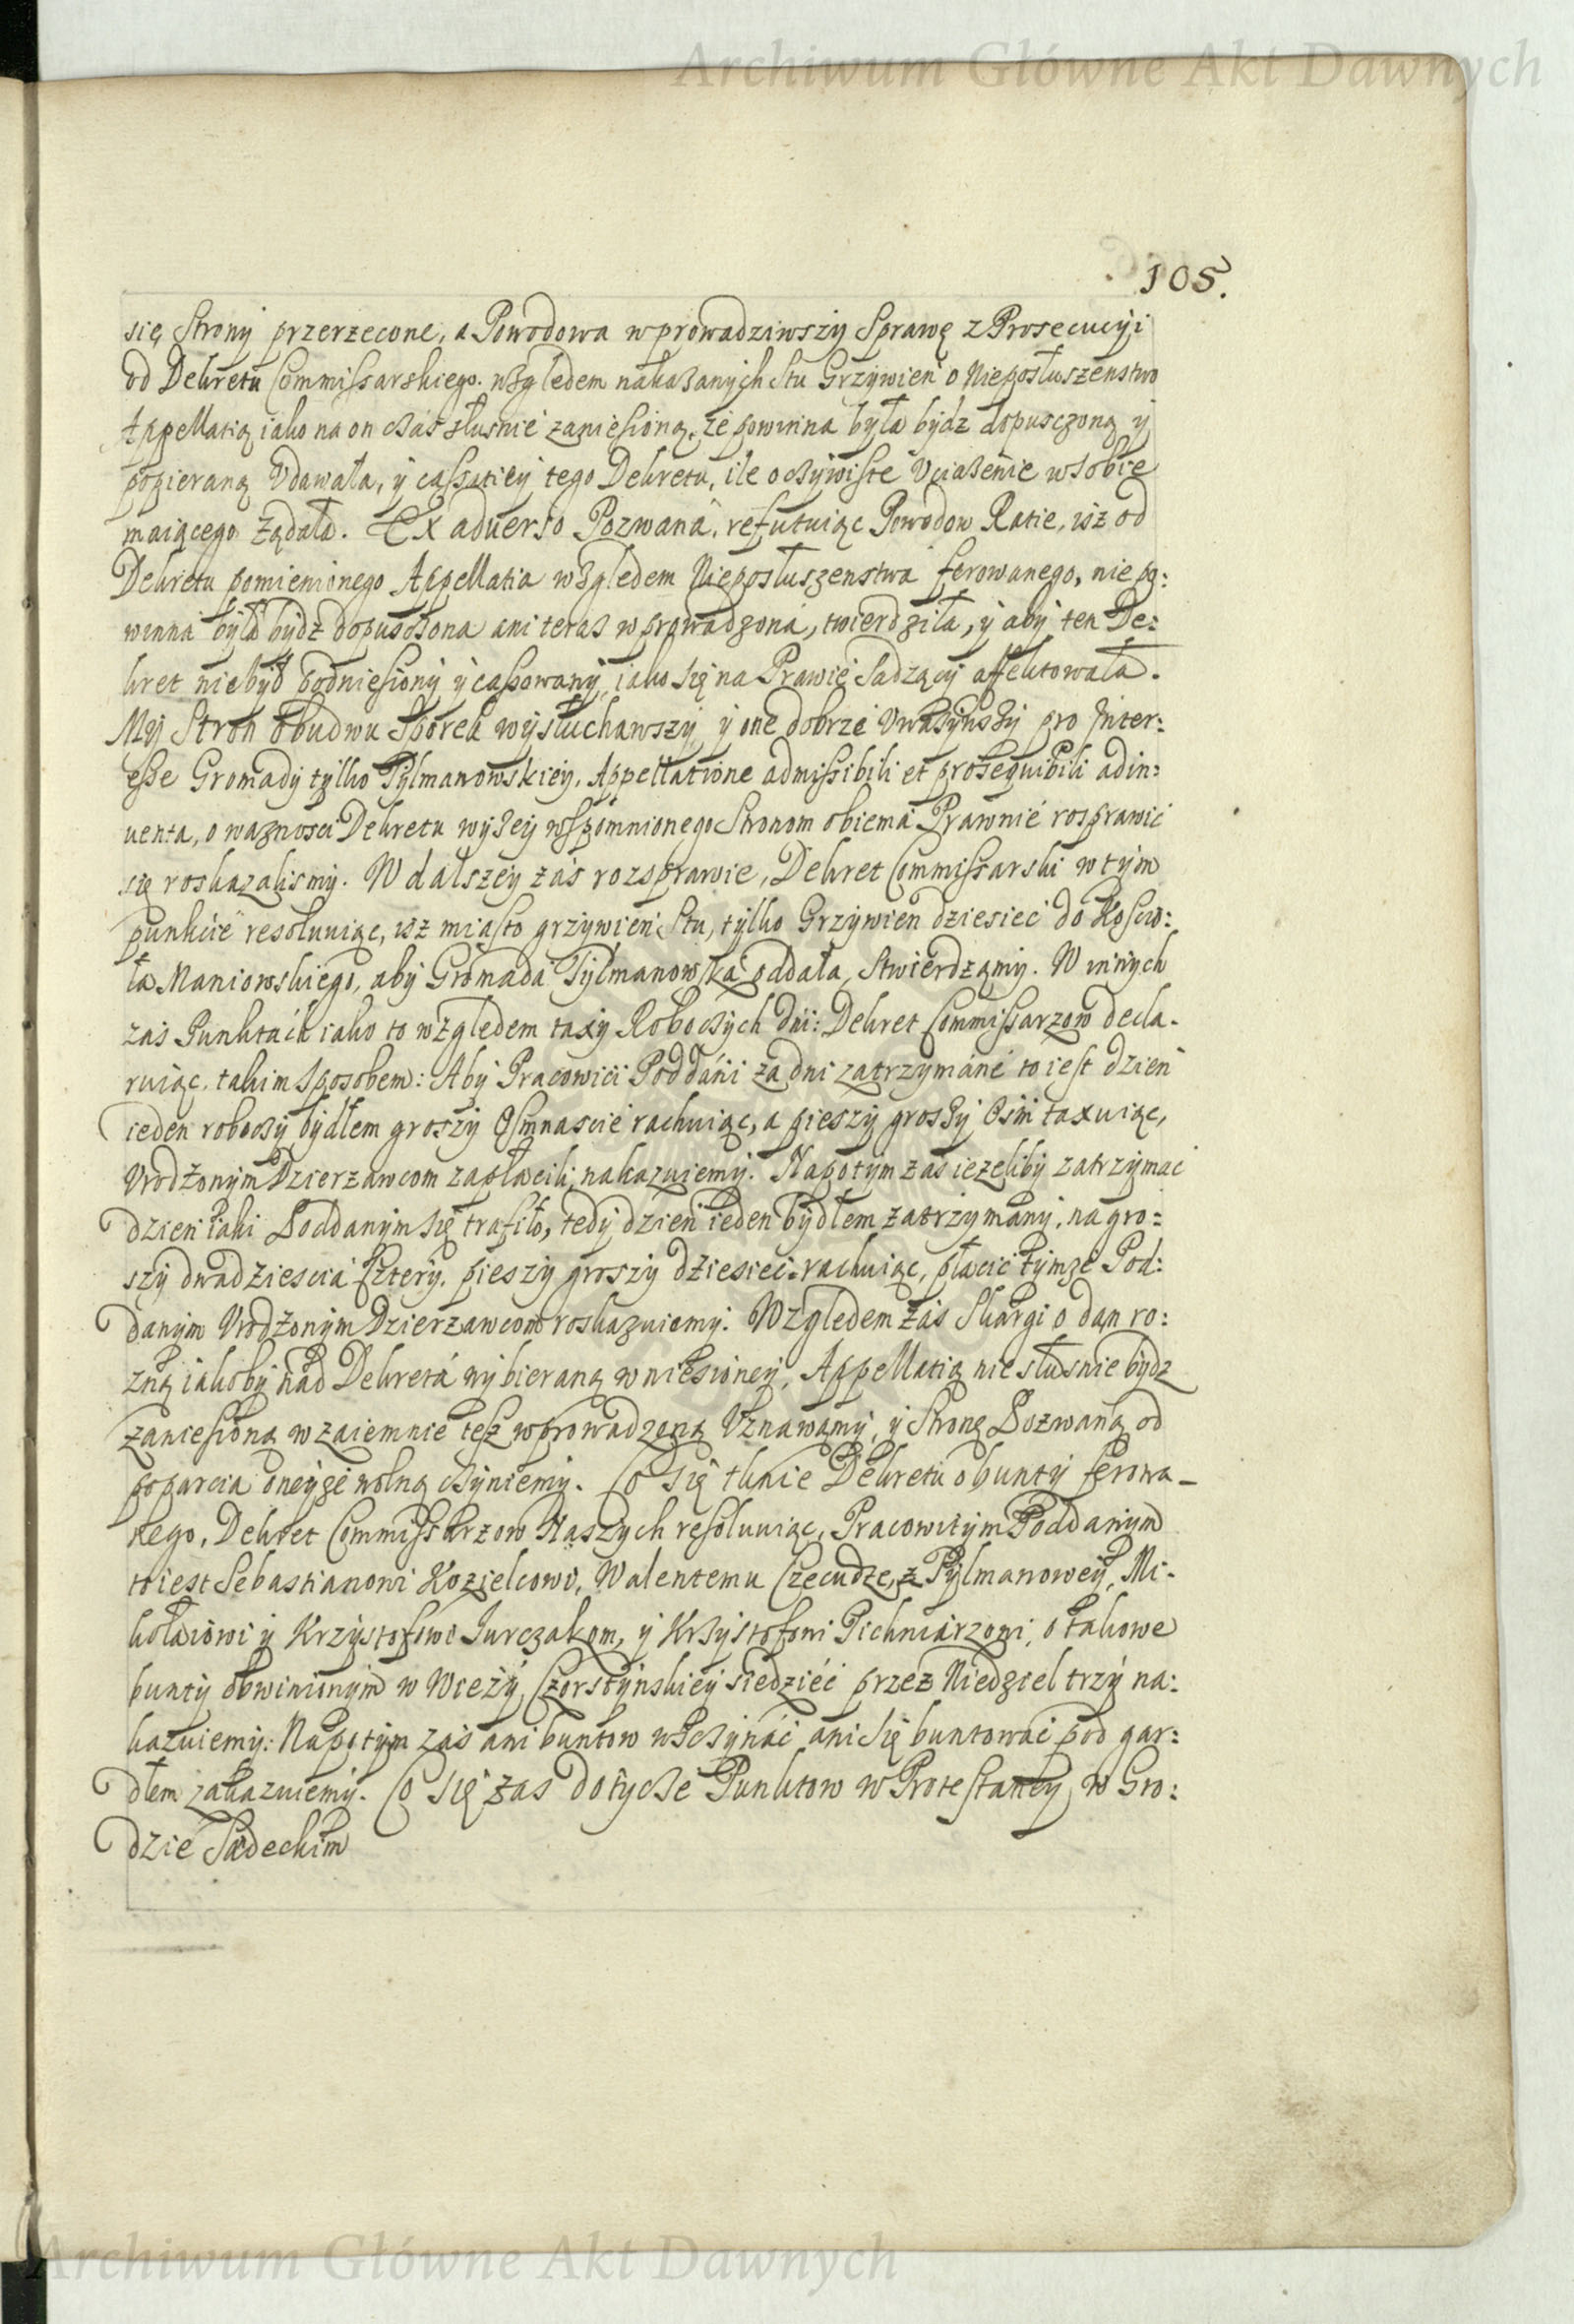 Archiwum Główne Akt Dawnych
105.
się Strony przerzecone, a Powodowa wprowadziwszy Sprawę z Prosecucyi
od Dekretu Commissarskiego. względem nakazanych Stu Grzywien o Nieposłuszenstwo
Appellatią iako na on czas słusnie zaniesioną, że powinna była bydz dopusczoną y
popieraną Vdawała, y cassatiey tego Dekretu, ile oczywiste Vciązenie w sobie
maiącego żądała. Ex aduerso Pozwana, refutuiąc Powodow Ratie, isz od
Dekretu pomienionego Appellatia względem Nieposłuszenstwa ferowanego, niepo:
winna była bydz dopusczona ani teras wprowadzona, twierdziła, y aby ten De:
kret niebył podniesiony y cassowany, iako się na Prawie sadzący affektowała.
My Stron obudwu Sporek wysłuchawszy y one dobrze Vwazywszy pro Inter:
esse Gromady tylko Tylmanowskiey, Appellatione admissibili et prosequibili adin:
uenta, o waznosci Dekretu wyzey wspomnionego Stronom obiema Prawnie rosprawic
się roskazalismy. W dalszey zas rozsprawie, Dekret Commissarski w tym
punkcie resoluuiąc, isz miasto grzywien Stu, tylko Grzywien dziesiec do Koscio:
ła Maniowskiego, aby Gromada Tylmanowska oddała, Stwierdzamy. W innych
zas Punktach iako to względem taxy Roboczych dni: Dekret Commissarzow decla-
ruiąc, takim sposobem: Aby Pracowici Poddani za dni zatrzymane to iest dzien
ieden roboczy bydłem groszy Osmnascie rachuiąc, a pieszy groszy Osm taxuiąc,
Vrodzonym Dzierzawcom zapłacili, nakazuiemy. Napotym zas iezeliby zatrzymac
dzien iaki Poddanym się trafiło, tedy dzien ieden bydłem zatrzymany, na gro:
szy dwadziescia sztery, pieszy groszy dziesiec rachuiąc, płacic tymze Pod:
danym Vrodzonym Dzierzawcom roskazuiemy. Względem zas Skargi o dan ro:
zną iakoby nad Dekreta wybieraną wniesioney, Appellatią niesłusnie bydz
zaniesioną wzaiemnie tesz wprowadzoną Vznawamy, y Stronę Pozwaną od
poparcia oneyze wolną czyniemy. Co się tknie Dekretu o bunty ferowa-
nego, Dekret Commissarzow Naszych resoluuiąc, Pracowitym Poddanym
to iest Sebastianowi Kozielcowi, Walentemu Czecudze, z Tylmanowey, Mi-
kołaiowi y Krzysztofowi Iurczakom, y Krzysztofowi Pichniarzowi, o takowe
bunty obwinionym w Wieży Czorstynskiey siedziéć przez Niedziel trzy na:
kazuiemy. Napotym zas ani buntow wszczynać ani się buntować pod gar:
dłem zakazuiemy. Co się zas dotycze Punktow w Protestatiey w Gro:
dzie Sądeckim
Archiwum Główne Akt Dawnych